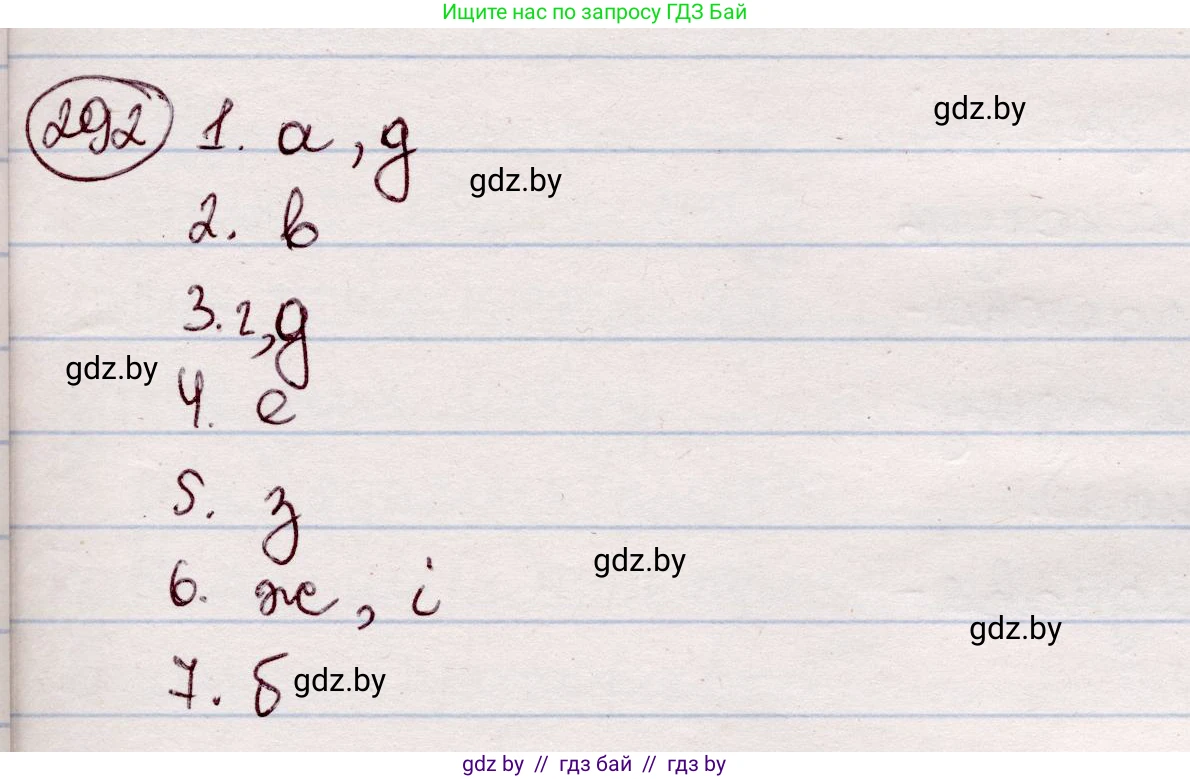 Ищите нас по запросу ГДЗ Бай
292 1. а, д
gdz.by
gdz.by
2. в
3. г, д
gdz.by
4. е
5. з
gdz.by
6. ж, і
gdz.by
7. б
gdz.by
gdz by // гдз бай // gdz by